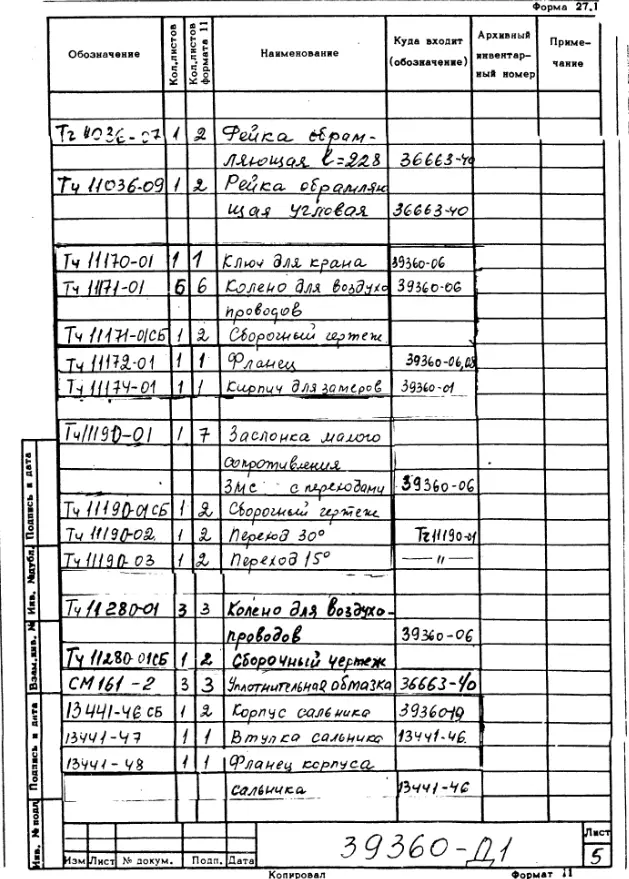 Форма 27.1
Обозначение Кол.листов Кол.листов формата 11 Наименование Куда входит (обозначение) Архивный инвентарный номер Примечание
11036-07 1 2 Рейка обрам-
ляющая ℓ=228 36663-40
Тч 11036-09 1 2 Рейка обрамляю
щая угловая 36663-40
Тч 11170-01 1 1 Ключ для крана 39360-06
Тч 11171-01 6 6 Колено для воздухо 39360-06
проводов
Тч 11171-01СБ 1 2 Сборочный чертеж
Тч 11172-01 1 1 Фланец 39360-06,08
Тч 11174-01 1 1 Кирпич для замеров 39360-01
Тч 11190-01 1 7 Заслонка малого
сопротивления
ЗМС с переходами 39360-06
Тч 11190-01СБ 1 2 Сборочный чертеж
Тч 11190-02 1 2 Переход 30° Тч 11190-01
Тч 11190-03 1 2 Переход 15° — " —
Тч 11280-01 3 3 Колено для воздухо-
проводов 39360-06
Тч 11280-01СБ 1 2 Сборочный чертеж
СМ161-2 3 3 Уплотнительная обмазка 36663-40
13441-46 СБ 1 2 Корпус сальника 39360-
13441-47 1 1 Втулка сальника 13441-46
13441-48 1 1 Фланец корпуса
сальника 13441-46
Инв. № подл Подпись и дата Взам.инв. № Инв. №дубл. Подпись и дата
39360-Д1
Лист
5
Изм Лист № докум. Подп. Дата
Копировал Формат 11